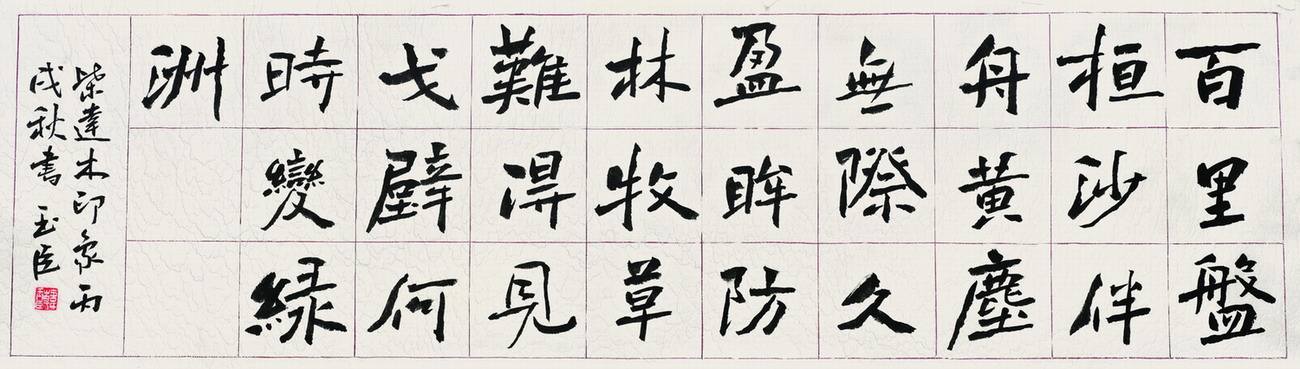 百里盤
桓沙伴
舟黄塵
無際久
盈眸防
林牧草
難得見
戈壁何
時變緑
洲
柴達木印象丙
戌秋書 玉臣